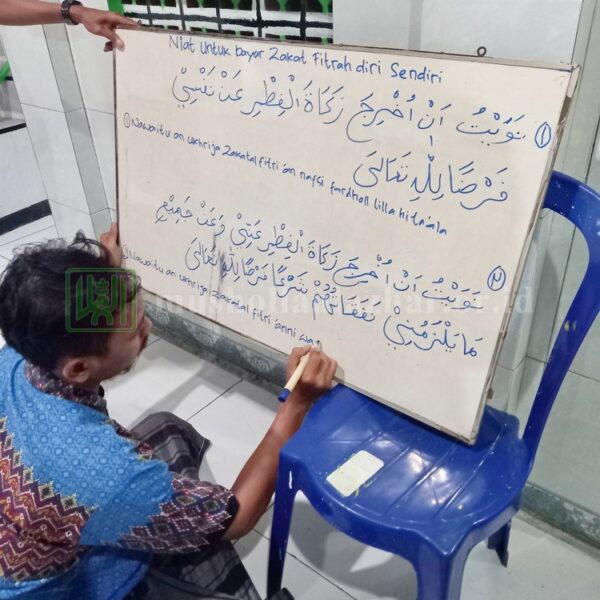 Niat untuk bayar Zakat Fitrah diri Sendiri
① نَوَيْتُ اَنْ اُخْرِجَ زَكَاةَ الْفِطْرِ عَنْ نَفْسِيْ
فَرْضًا لِلّٰهِ تَعَالَى
① Nawaitu an ukhrija Zakatal fitri 'an nafsi fardholl lilla hi ta'ala
② نَوَيْتُ اَنْ اُخْرِجَ زَكَاةَ الْفِطْرِ عَنِّيْ وَعَنْ جَمِيْعِ
مَا يَلْزَمُنِيْ نَفَقَاتُهُمْ شَرْعًا فَرْضًا لِلّٰهِ تَعَالَى
② Nawaitu an ukhrija Zakatal fitri 'anni wa